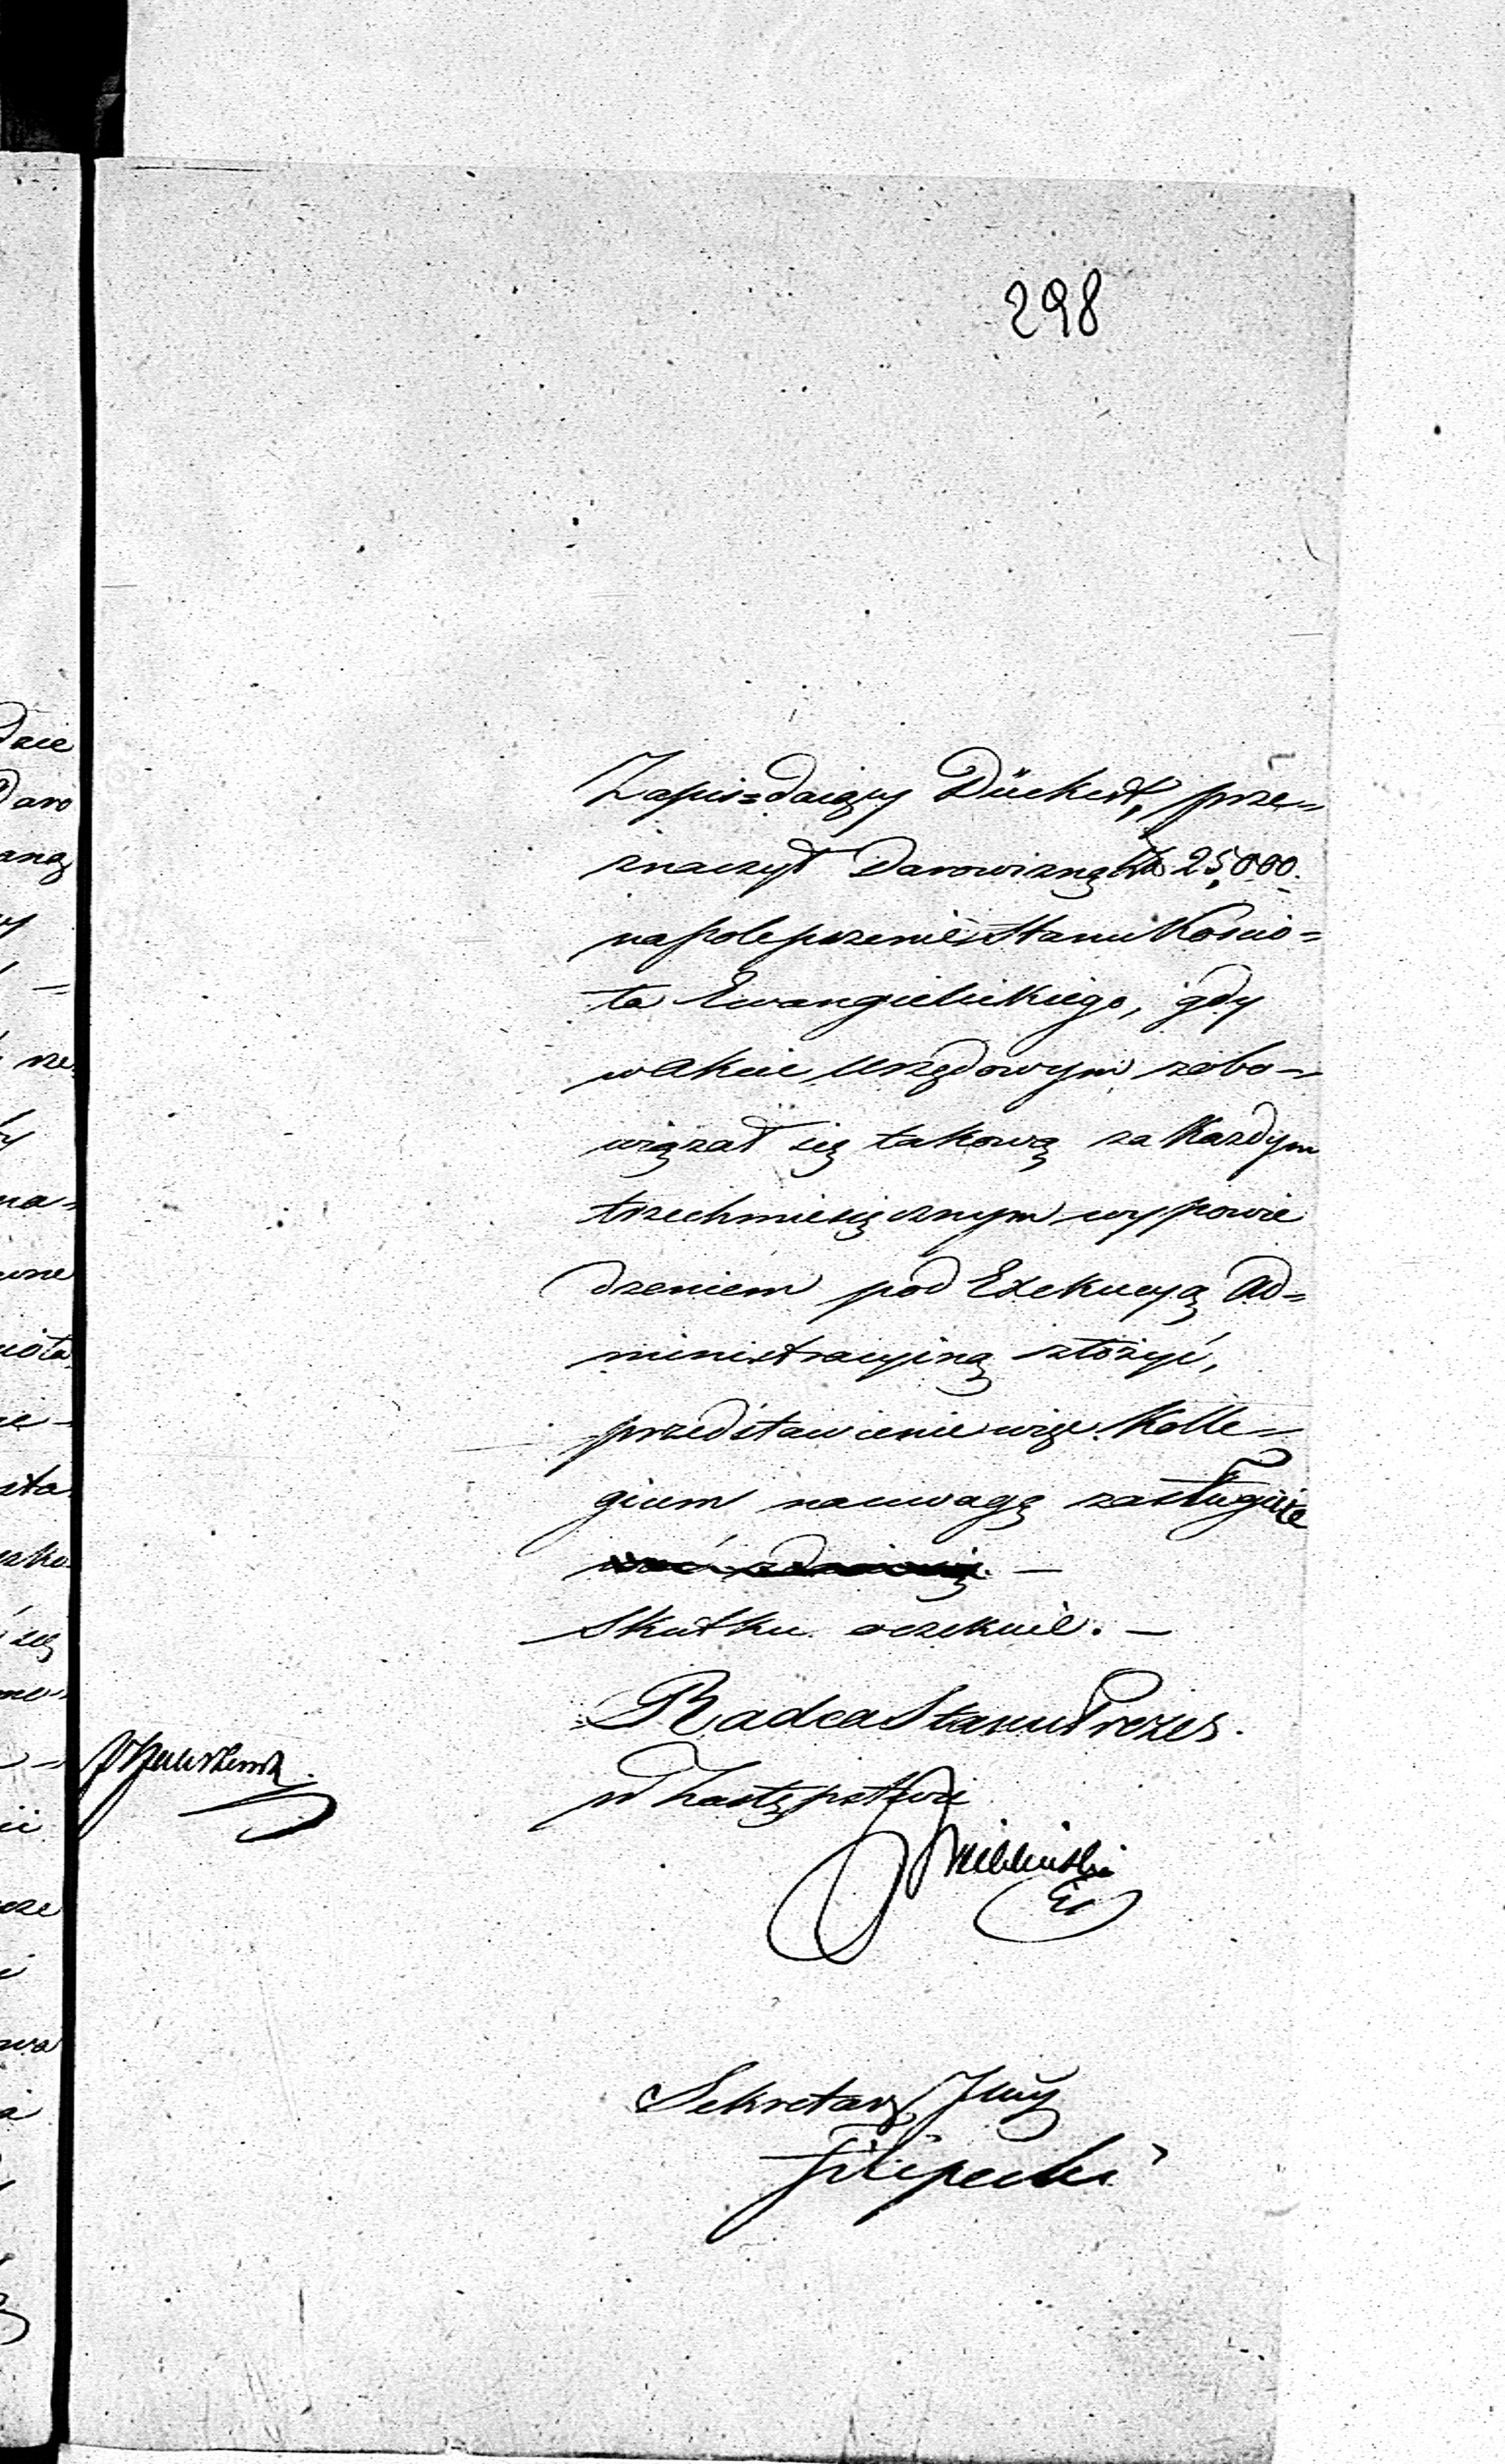 298
Zapis=daiący Dückert, prze=
znaczył Darowiznę Złp 25,000.
na polepszenie Stanu Kościo=
ła Ewangielickiego, gdy
w akcie urzędowym zobo=
wiązał się takową za każdym
trzechmiesięcznym wypowie
dzeniem pod Exekucyą Ad=
ministracyiną złożyć,
przedstawienie więc Kolle=
gium na uwagę zasługuie
Skutku oczekuie. —
Radca Stanu Prezes.
w Zastępstwie
Sekretarz Jlny
Filipecki